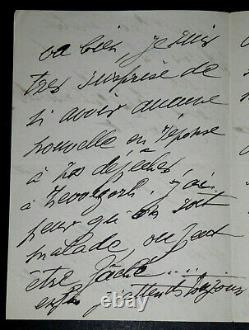 ou bien, je suis
très surprise de
n'avoir aucune
nouvelle en réponse
à vos dépêches,
à
peur qu'on soit
malade, ou peut
être fâché....
enfin j'attends toujours